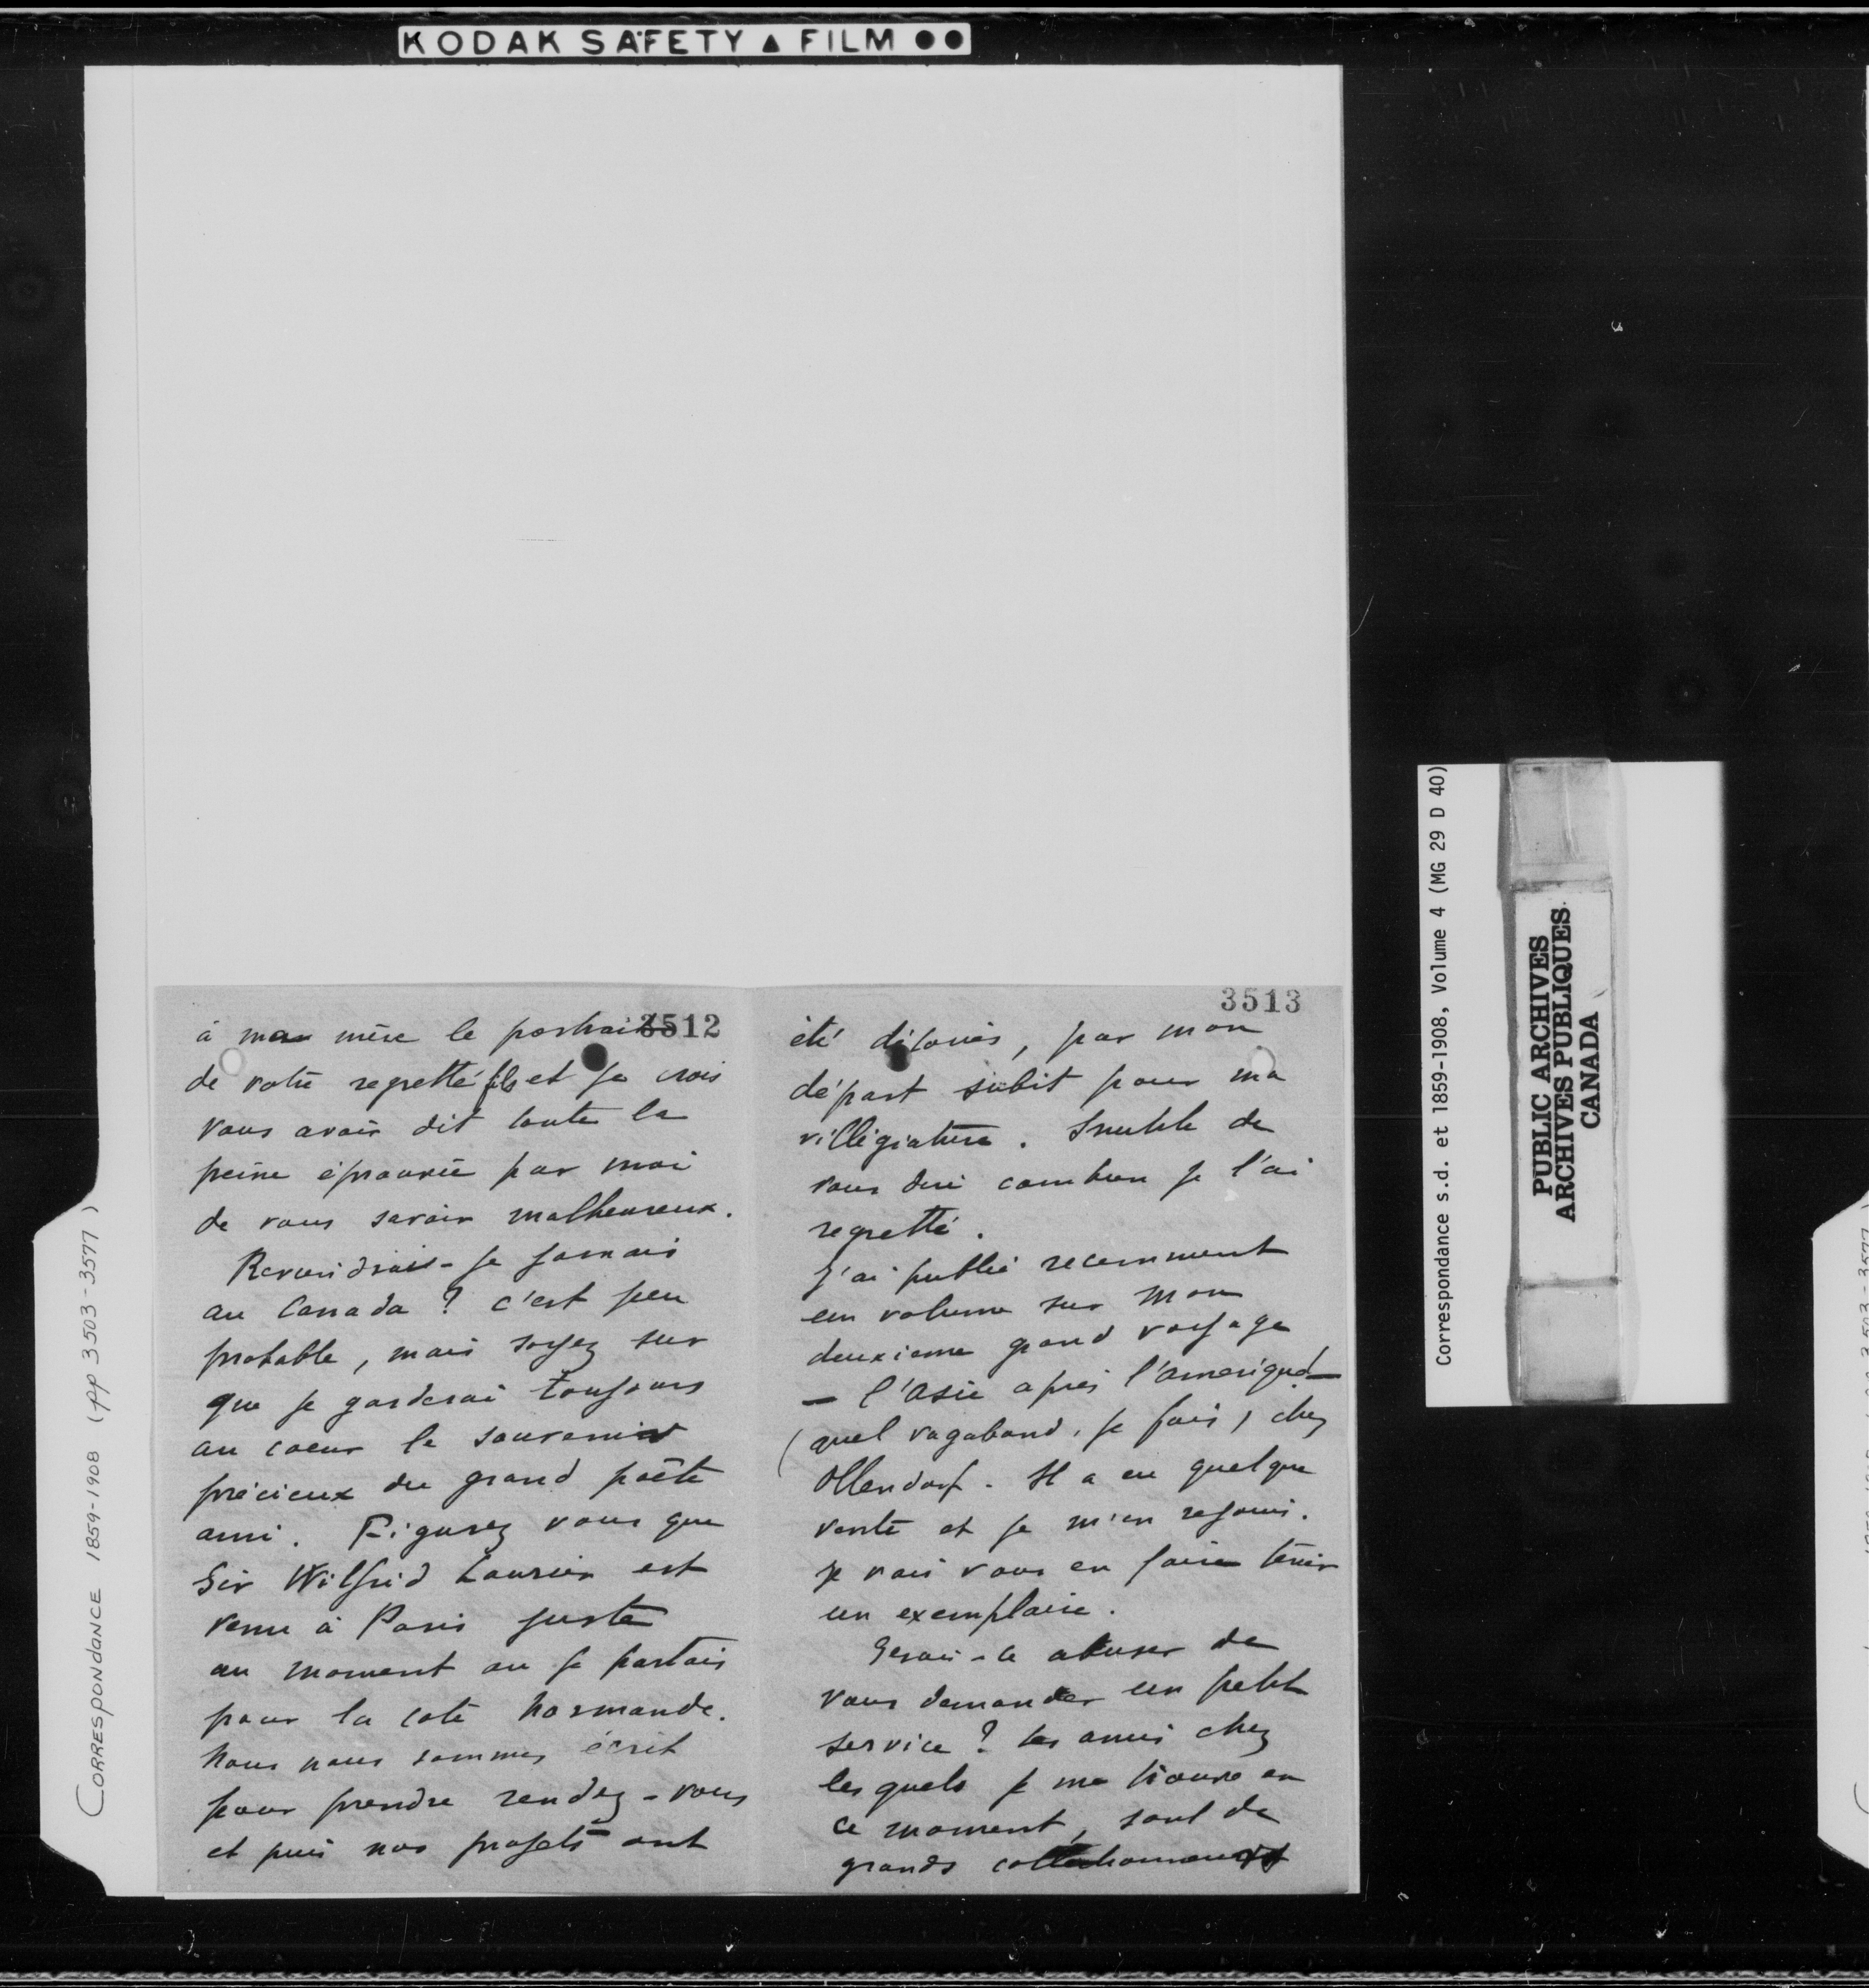 KODAK SAFETY FILM
3512
à ma mère le portrait
de votre regretté fils et je crois
vous avoir dit toute la
peine éprouvée par moi
de vous savoir malheureux.
Reviendrais-je jamais
au Canada ? c'est peu
probable, mais soyez sur
que je garderai toujours
au coeur le souvenir
précieux du grand poête
ami. Figurez vous que
Sir Wilfrid Laurier est
venu à Paris juste
au moment ou je partais
pour la cote normande.
Nous nous sommes écrit
pour prendre rendez-vous
et puis nos projets ont
3513
été déjoués, par mon
départ subit pour ma
villégiature. Inutile de
vous dire combien je l'ai
regretté.
J'ai publié recemment
un volume sur mon
deuxieme grand voyage
- l'Asie après l'Amerique! -
(quel vagabond, je fais, chez
Ollendorf. Il a eu quelque
vente et je m'en rejouis.
Je vais vous en faire tenir
un exemplaire.
Serais-ce abuser de
vous demander un petit
service ? les amis chez
lesquels je me trouve en
ce moment, sont de
grands collectionneurs
CORRESPONDANCE 1859-1908 (pp 3503-3577)
Correspondance s.d. et 1859-1908, Volume 4 (MG 29 D 40)
PUBLIC ARCHIVES
ARCHIVES PUBLIQUES
CANADA